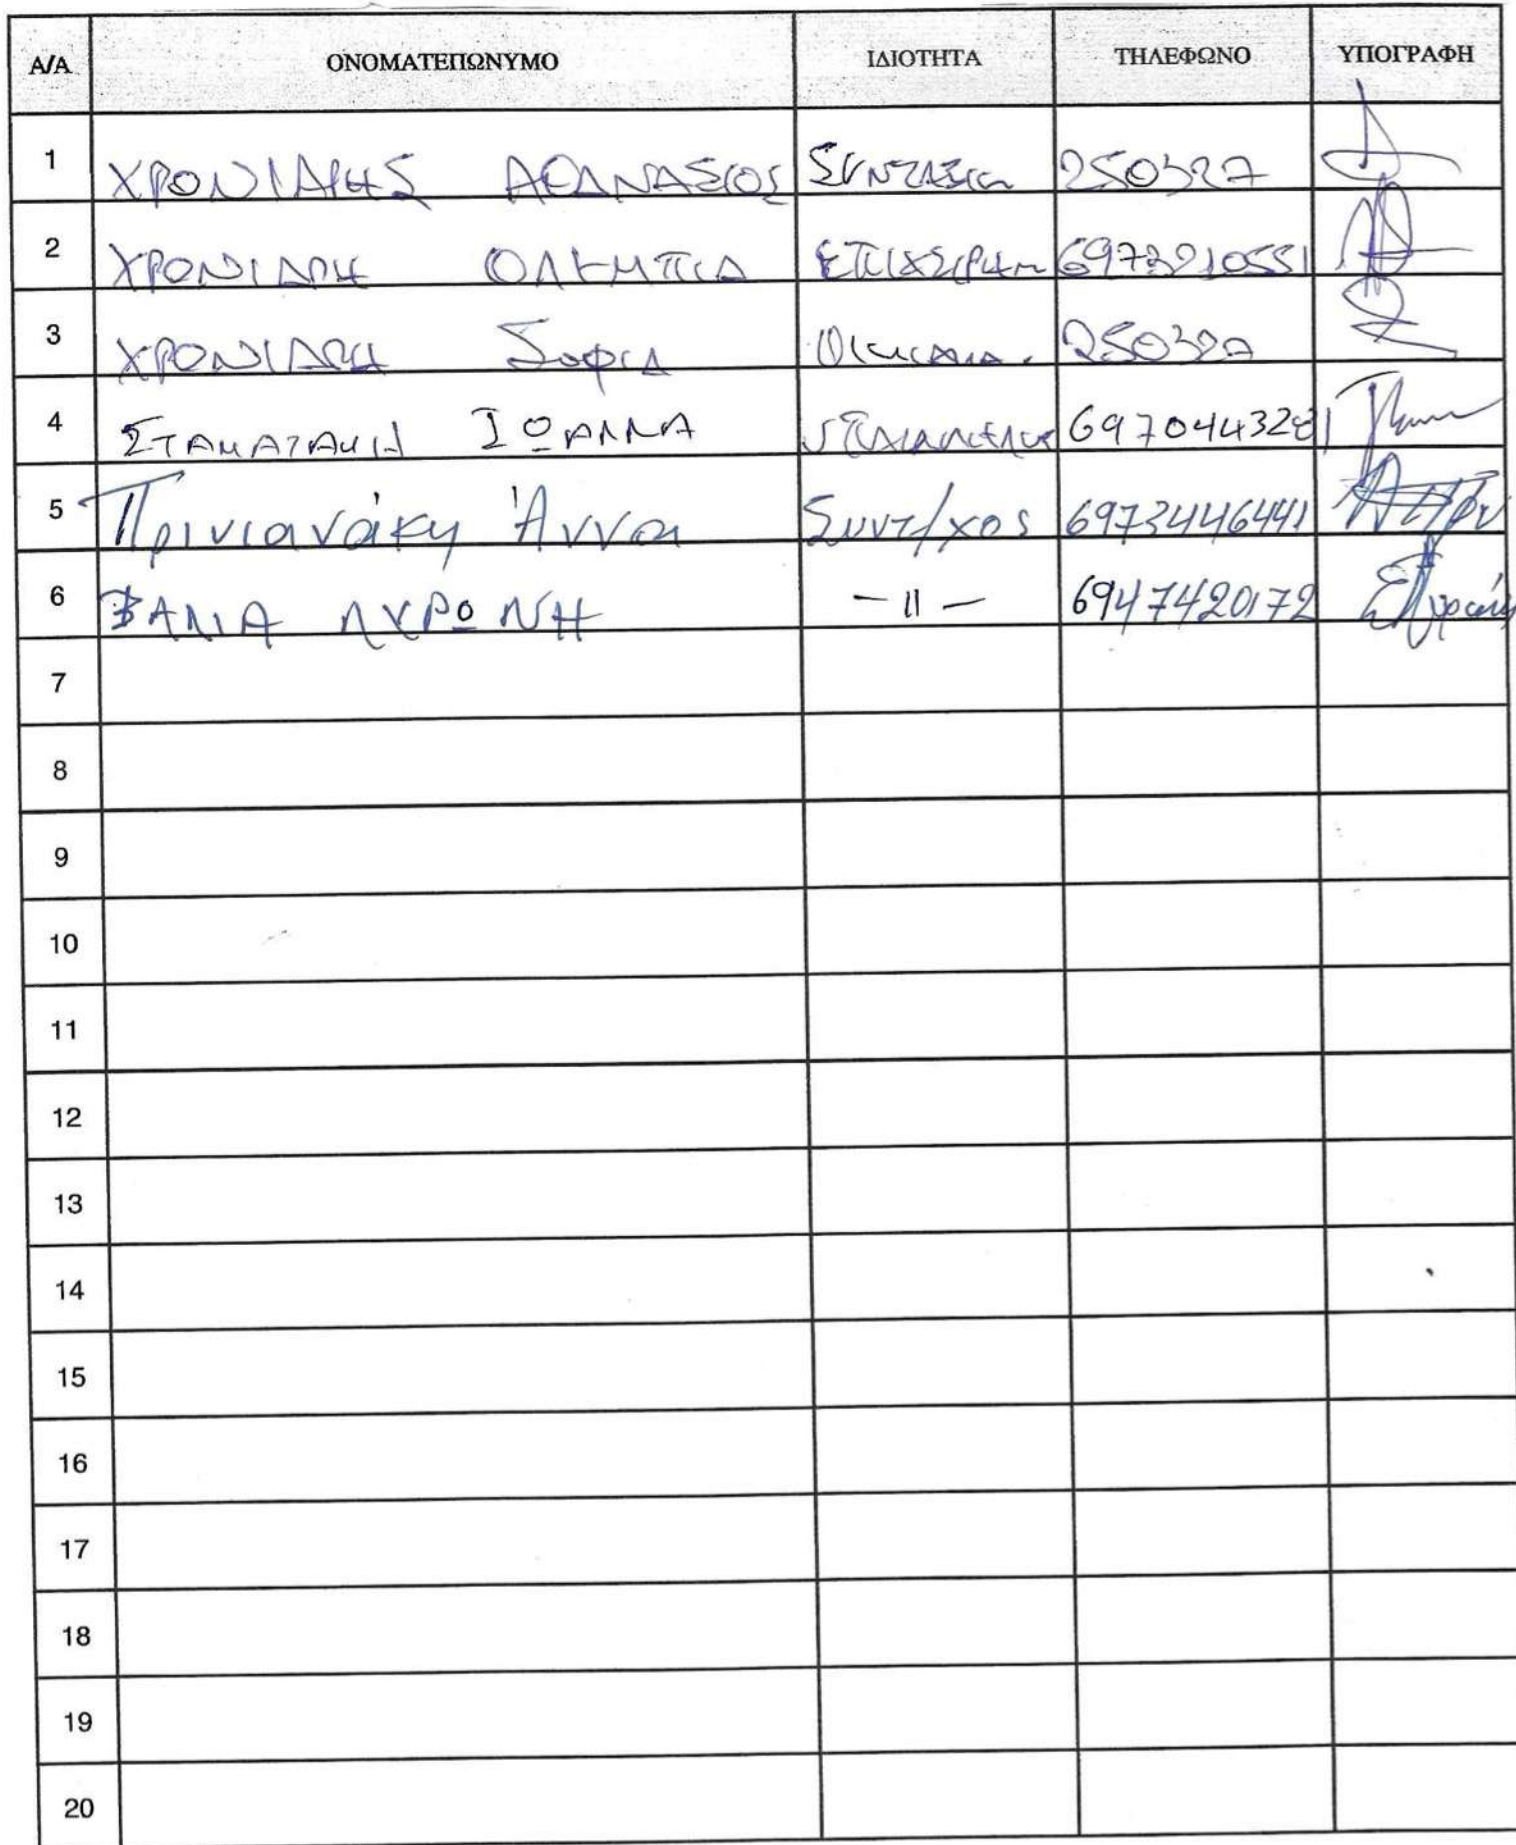 Α/Α ΟΝΟΜΑΤΕΠΩΝΥΜΟ ΙΔΙΟΤΗΤΑ ΤΗΛΕΦΩΝΟ ΥΠΟΓΡΑΦΗ
1 ΧΡΟΝΙΑΡΗΣ ΑΘΑΝΑΣΙΟΣ 250327
2 ΧΡΟΝΙΑΡΗ ΟΛΥΜΠΙΑ 6973210551
3 ΧΡΟΝΙΑΡΗ Σοφια 250327
4 ΣΤΑΜΑΤΑΚΗ ΙΩΑΝΝΑ
5 Πρινιανάκη Άννα Συντ/χος 6973446441
6 ΒΑΛΙΑ ΛΥΡΩΝΗ - 11 - 6947420172
7
8
9
10
11
12
13
14
15
16
17
18
19
20